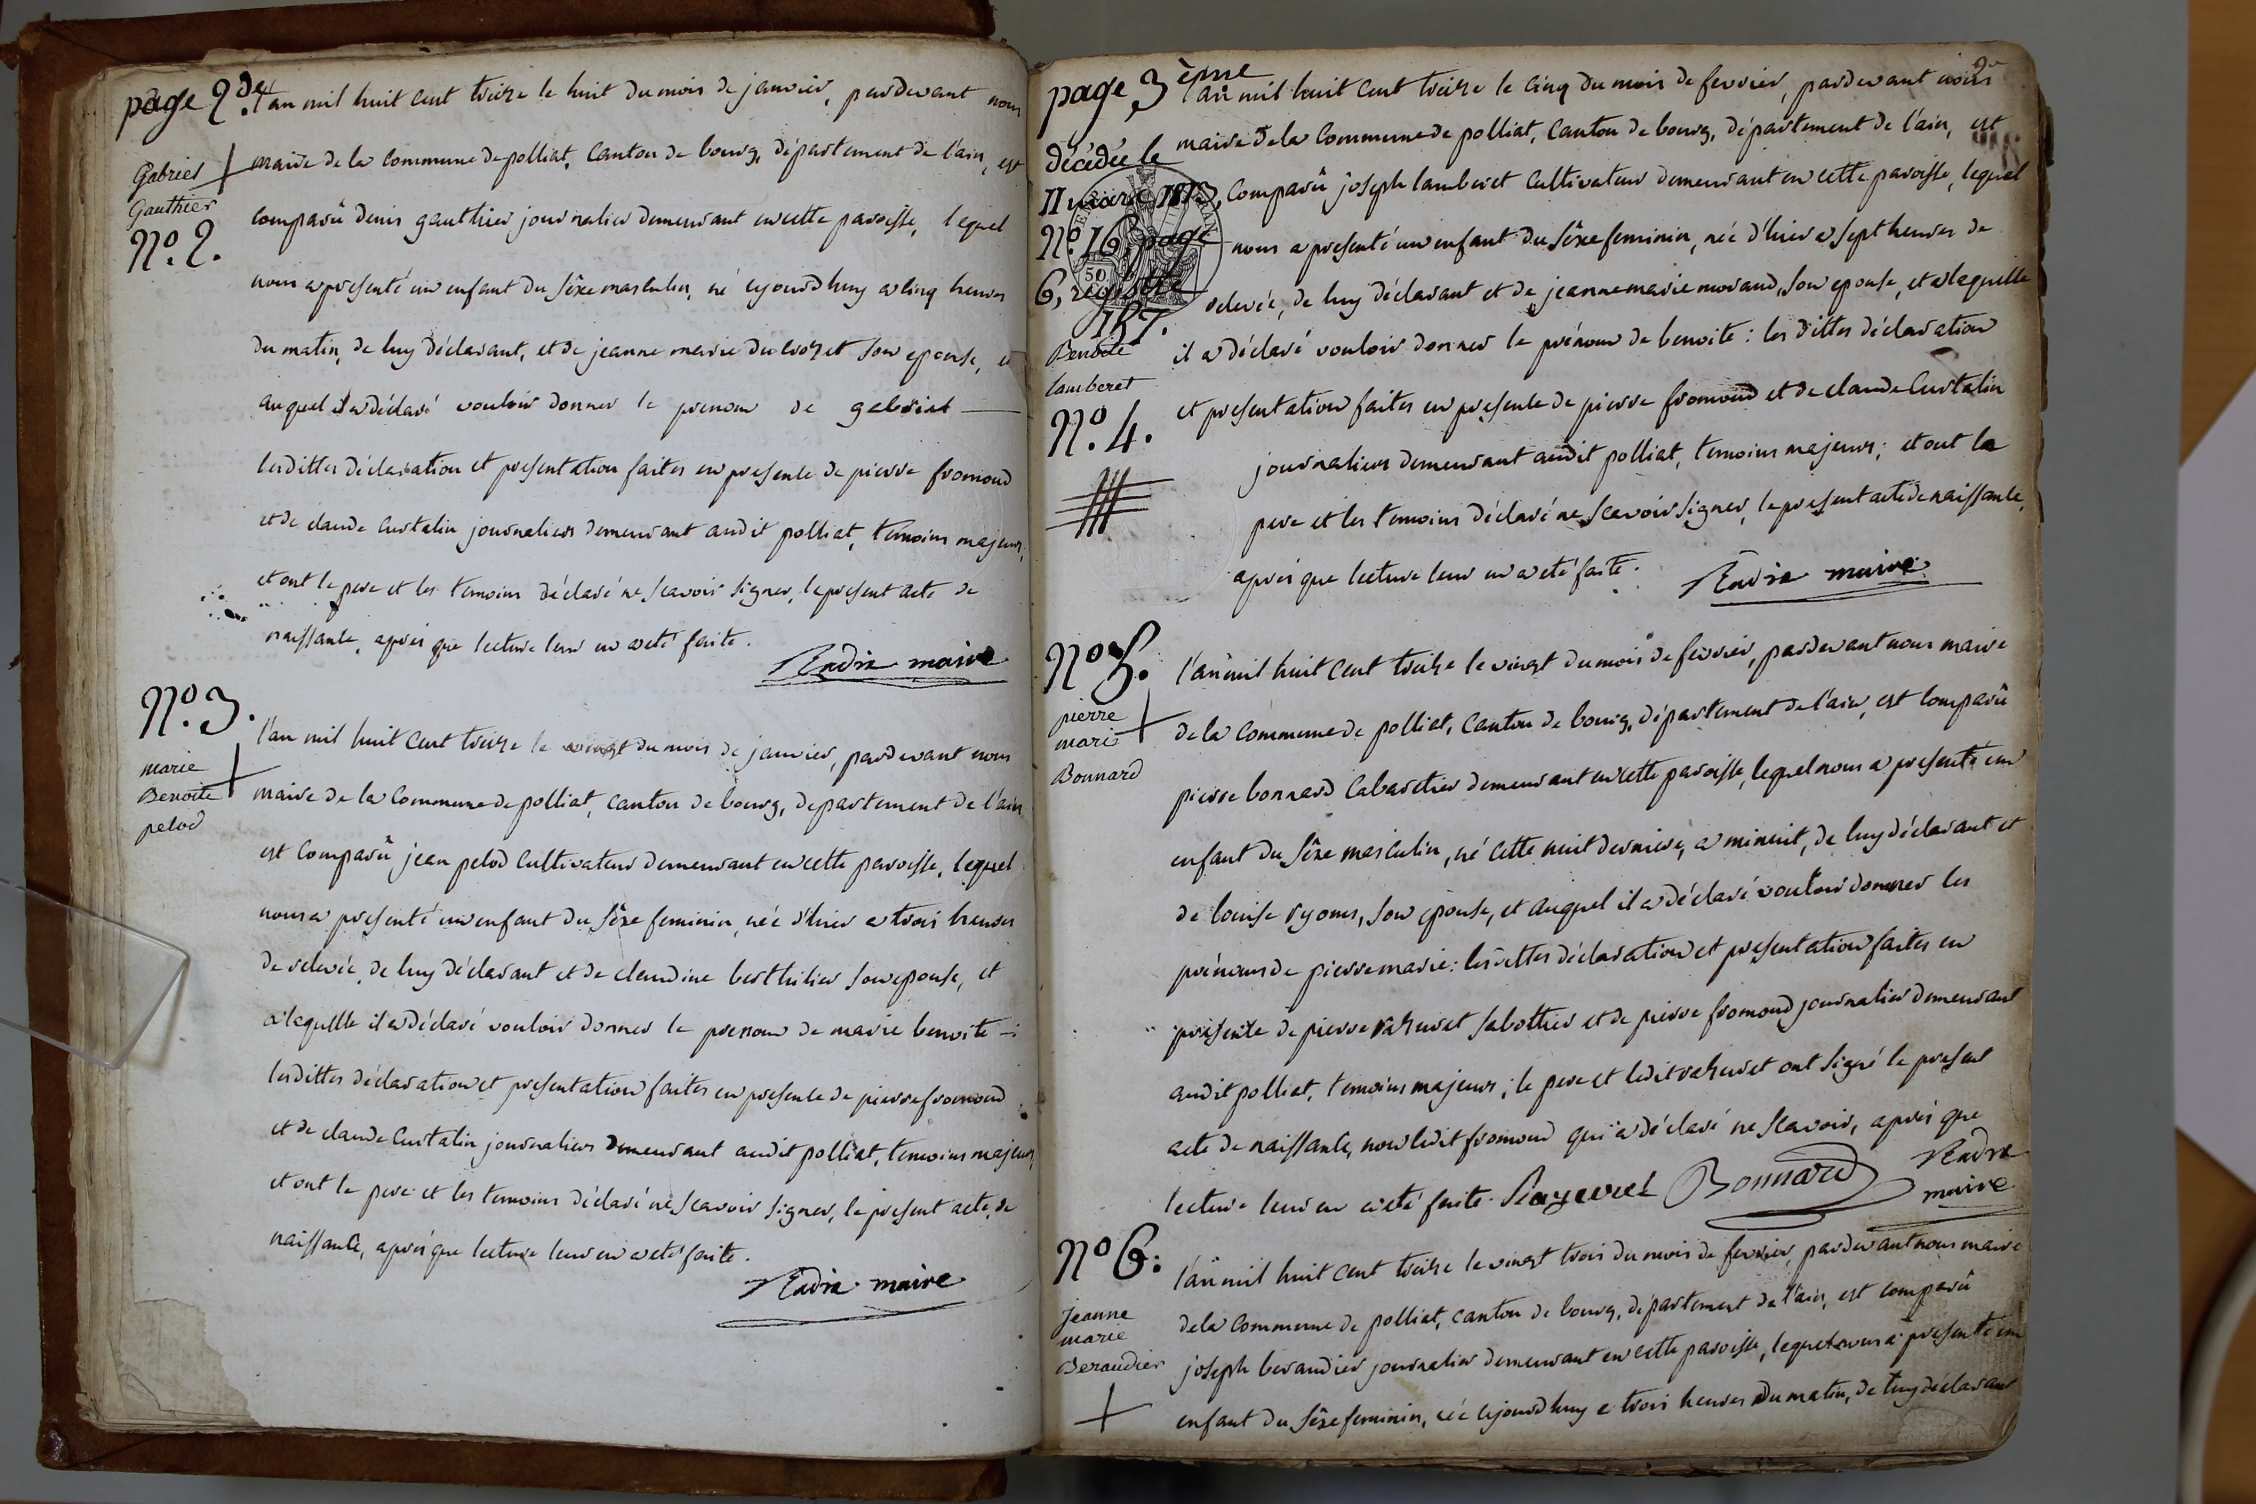 page 2.de
l'an mil huit cent treize le huit du mois de janvier, pardevant nous
Gabriel
Gauthier
N.o 2.
maire de la commune de polliat, canton de bourg, département de l'ain, est
comparû denis gauthier journalier demeurant en cette paroisse, lequel
nous a presenté un enfant du sêxe masculin, né ajourd huy a cinq heures
du matin, de luy déclarant, et de jeanne marie du crozet son epouse, et
auquel il a déclaré vouloir donner le prenom de gabriel
lesdittes déclaration et presentation faites en presence de pierre fromond
et de claude curtalin journaliers demeurant audit polliat, temoins majeurs;
et ont le pere et les temoins déclaré ne scavoir signer, le present acte de
naissance, après que lecture leur en a eté faite.
maire
N.o 3.
marie
Benoite
pelod
l'an mil huit cent treize le vingt du mois de janvier, pardevant nous
maire de la commune de polliat, canton de bourg, departement de l'ain
est comparû jean pelod cultivateur demeurant en cette paroisse, lequel
nous a presenté un enfant du sêxe feminin, née d'hier a trois heures
de relevée, de luy déclarant et de claudine berthilier son epouse, et
a laquelle il a déclaré vouloir donner le prenom de marie benoite :
lesdittes déclaration et presentation faites en presence de pierre fromond
et de claude curtalin journaliers demeurant audit polliat, temoins majeurs,
et ont le pere et les temoins déclaré ne scavoir signer, le present acte de
naissance, après que lecture leur en a eté faite.
maire
page 3 ème
l'an mil huit cent treize le cinq du mois de fevrier, pardevant nous
décédée le
11 mars 1813,
N.o 16, page
6, registre
157.
Benoite
lamberet
N.o 4.
maire de la commune de polliat, canton de bourg, département de l'ain, est
comparû joseph lamberet cultivateur demeurant en cette paroisse, lequel
nous a presenté un enfant du sêxe feminin, née d'hier a sept heures de
relevée, de luy déclarant et de jeanne marie morand, son epouse, et a laquelle
il a déclaré vouloir donner le prénom de benoite : les dittes déclaration
et presentation faites en presence de pierre fromond et de claude curtalin
journaliers demeurant audit polliat, temoins majeurs; et ont le
pere et les temoins déclaré ne scavoir signer, le present acte de naissance,
après que lecture leur en a eté faite.
maire
N.o 5.
pierre
marie
Bonnard
l'an mil huit cent treize le vingt du mois de fevrier, pardevant nous maire
de la commune de polliat, canton de bourg, département de l'ain, est comparû
pierre bonnard cabaretier demeurant en cette paroisse, lequel nous a presenté un
enfant du sêxe masculin, né cette nuit derniere, a minuit, de luy déclarant et
de louise ryoner, son epouse, et auquel il a déclaré vouloir donner les
prénoms de pierre marie : lesdittes déclaration et presentation faites en
presence de pierre sabottier et de pierre fromond journalier demeurant
audit polliat, temoins majeurs; le pere et ledit ont signé le present
acte de naissance, non ledit fromond qui a déclaré ne scavoir, après que
lecture leur en a eté faite. Bonnard
maire
N.o 6:
Jeanne
marie
Beraudier
l'an mil huit cent treize le vingt trois du mois de fevrier, pardevant nous maire
de la commune de polliat, canton de bourg, département de l'ain, est comparû
joseph beraudier journalier demeurant en cette paroisse, lequel nous a presenté un
enfant du sêxe feminin, née ajourd huy a trois heures du matin, de luy déclarant